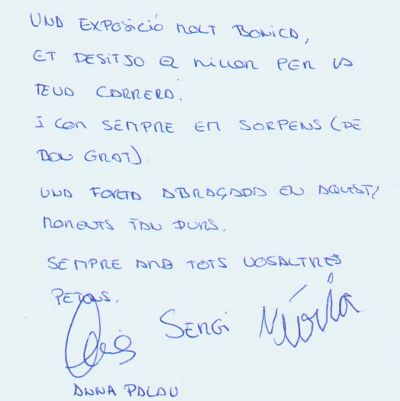 UNA EXPOSICIÓ MOLT BONICA,
ET DESITJO EL MILLOR PER LA
TEUA CARRERA.
I COM SEMPRE EM SORPENS (DE
BON GRAT).
UNA FORTA ABRAÇADA EN AQUESTS
MOMENTS TAN DURS.
SEMPRE AMB TOTS VOSALTRES
PETONS.
SERGI Núria
ANNA PALAU